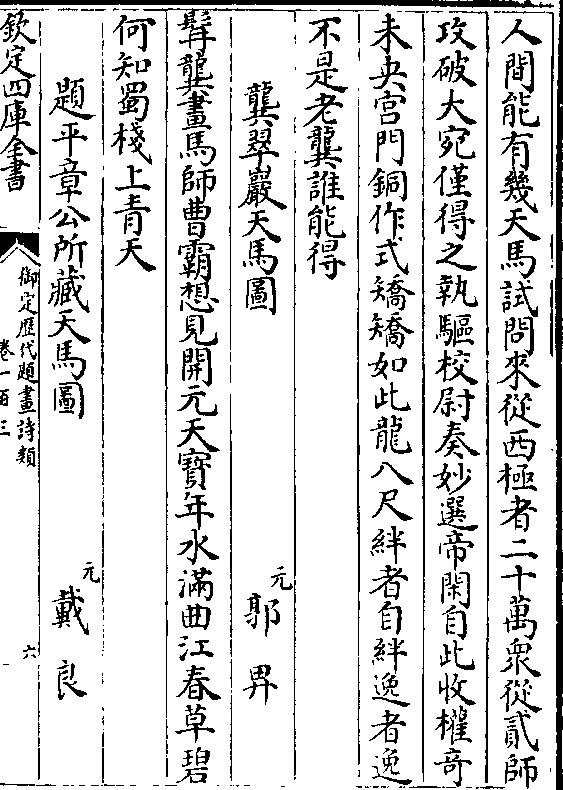 人間能有幾天馬試問來從西極者二十萬衆從貳師
攻破大宛僅得之執驅校尉奏妙選帝閑自此收權奇
未央宫門銅作式矯矯如此龍八尺絆者自絆逸者逸
不是老龔誰能得
龔翠巖天馬圖
元 郭畀
髯龔畫馬師曹霸想見開元天寶年水滿曲江春草碧
何知蜀棧上青天
題平章公所藏天馬圖
元 戴良
欽定四庫全書
御定歷代題畫詩類
卷一百三
六